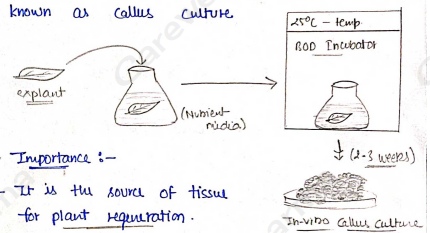 known as callus culture
25°C - temp.
BOD Incubator
explant
(Nutrient
media)
(2-3 weeks)
- Importance :-
- It is the source of tissue
for plant regeneration.
In-vitro callus culture